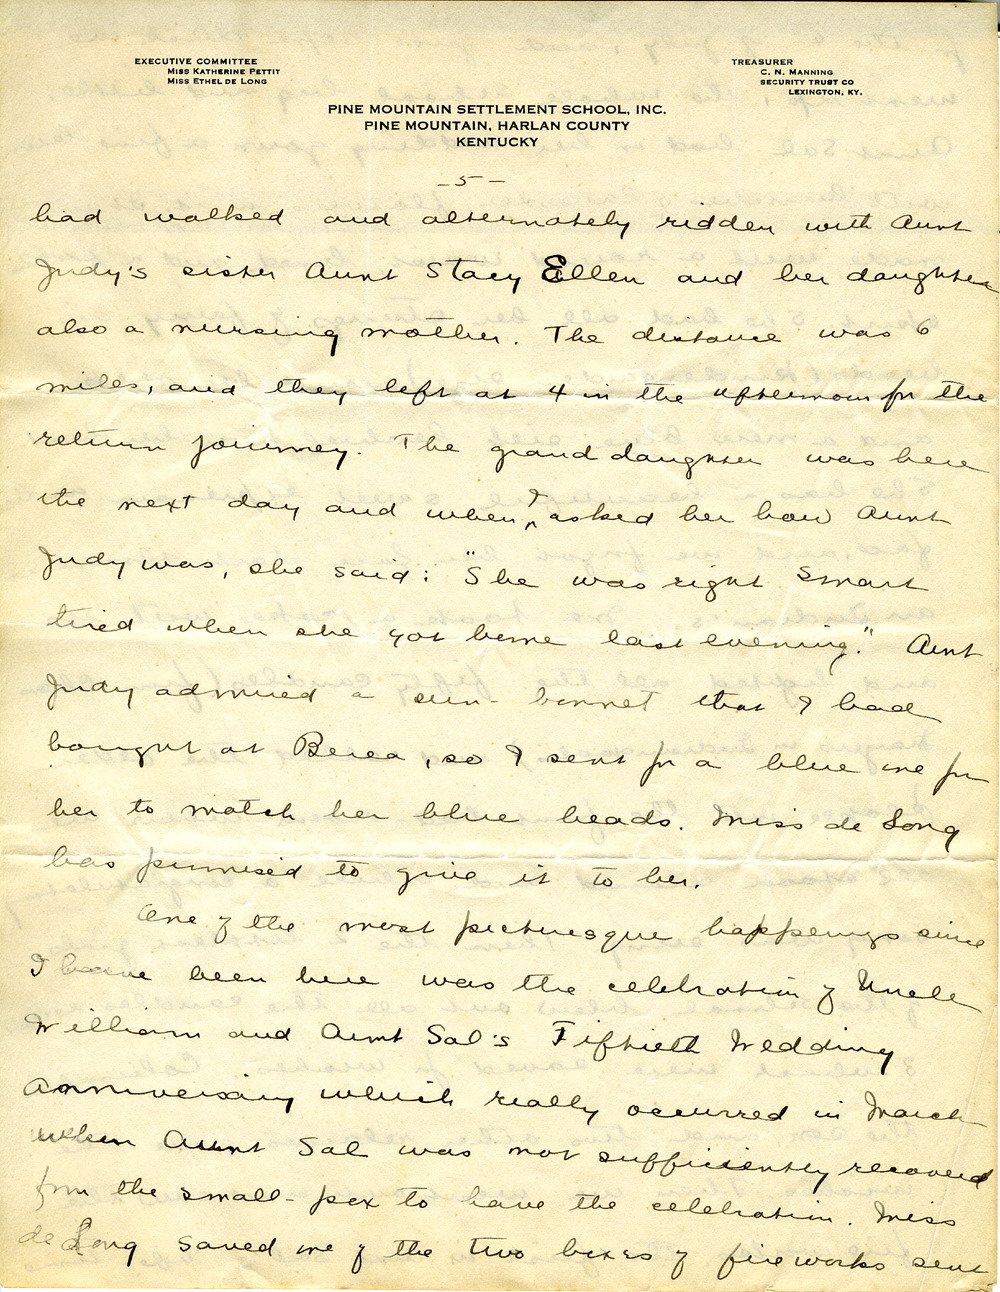 EXECUTIVE COMMITTEE
MISS KATHERINE PETTIT
MISS ETHEL DE LONG
TREASURER
C. N. MANNING
SECURITY TRUST CO
LEXINGTON, KY.
PINE MOUNTAIN SETTLEMENT SCHOOL, INC.
PINE MOUNTAIN, HARLAN COUNTY
KENTUCKY
-5-
had walked and alternately ridden with Aunt
Judy's sister Aunt Stacy Ellen and her daughter
also a nursing mother. The distance was 6
miles, and they left at 4 in the afternoon for the
return journey. The granddaughter was here
the next day and when I asked her how Aunt
Judy was, she said: "She was right smart
tired when she got home last evening." Aunt
Judy admired a sun-bonnet that I had
bought at Berea, so I sent for a blue one for
her to match her blue beads. Miss de Long
has promised to give it to her.
One of the most picturesque happenings since
I have been here was the celebration of Uncle
William and Aunt Sal's Fiftieth Wedding
Anniversary which really occurred in March
when Aunt Sal was not sufficiently recovered
from the small-pox to have the celebration. Miss
de Long saved one of the two boxes of fireworks sent